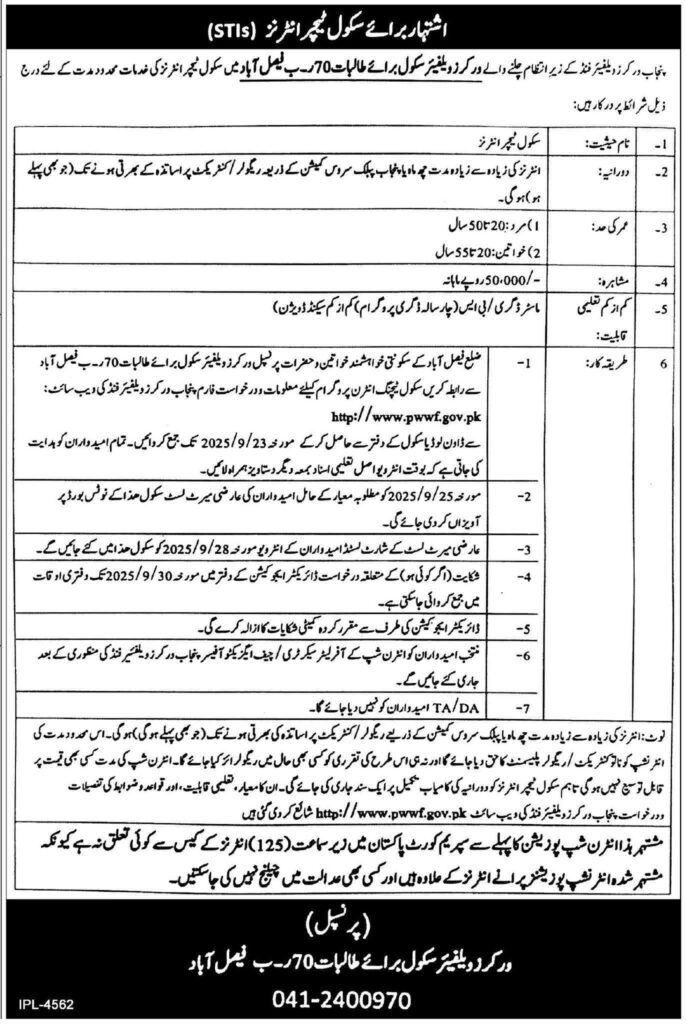 اشتہار برائے سکول ٹیچر انٹرنز (STIs)
پنجاب ورکرز ویلفیئر فنڈ کے زیر انتظام چلنے والے ورکرز ویلفیئر سکول برائے طالبات 70ر۔ب فیصل آباد میں سکول ٹیچر انٹرنز کی خدمات محدود مدت کے لئے درج
ذیل شرائط پر درکار ہیں:
1۔ نام حیثیت: سکول ٹیچر انٹرنز
2۔ دورانیہ: انٹرنز کی زیادہ سے زیادہ مدت چھ ماہ یا پنجاب پبلک سروس کمیشن کے ذریعہ ریگولر/کنٹریکٹ پر اساتذہ کے بھرتی ہونے تک (جو بھی پہلے
ہو) ہو گی۔
3۔ عمر کی حد: 1) مرد: 20 تا 50 سال
2) خواتین: 20 تا 55 سال
4۔ مشاہرہ: 50,000/- روپے ماہانہ
5۔ کم از کم تعلیمی ماسٹر ڈگری/بی ایس (چار سالہ ڈگری پروگرام) کم از کم سیکنڈ ڈویژن)
قابلیت:
6 طریقہ کار: 1- ضلع فیصل آباد کے سکونتی خواہشمند خواتین و حضرات پرنسپل ورکرز ویلفیئر سکول برائے طالبات 70ر۔ب فیصل آباد
سے رابطہ کریں سکول ٹیچنگ انٹرن پروگرام کیلئے معلومات و درخواست فارم پنجاب ورکرز ویلفیئر فنڈ کی ویب سائٹ:
http://www.pwwf.gov.pk
سے ڈاون لوڈ یا سکول کے دفتر سے حاصل کر کے مورخہ 2025/9/23 تک جمع کروائیں۔ تمام امیدواران کو ہدایت
کی جاتی ہے کہ بوقت انٹرویو اصل تعلیمی اسناد بمعہ دیگر دستاویز ہمراہ لائیں۔
2- مورخہ 2025/9/25 کو مطلوبہ معیار کے حامل امیدواران کی عارضی میرٹ لسٹ سکول ھذا کے نوٹس بورڈ پر
آویزاں کر دی جائے گی۔
3- عارضی میرٹ لسٹ کے شارٹ لسٹڈ امیدواران کے انٹرویو مورخہ 2025/9/28 کو سکول ھذا میں کئے جائیں گے۔
4- شکایت (اگر کوئی ہو) کے متعلقہ درخواست ڈائریکٹر ایجوکیشن کے دفتر میں مورخہ 2025/9/30 تک دفتری اوقات
میں جمع کروائی جا سکتی ہے۔
5- ڈائریکٹر ایجوکیشن کی طرف سے مقرر کردہ کمیٹی شکایات کا ازالہ کرے گی۔
6- منتخب امیدواران کو انٹرن شپ کے آفر لیٹر سیکرٹری/چیف ایگزیکٹو آفیسر پنجاب ورکرز ویلفیئر فنڈ کی منظوری کے بعد
جاری کئے جائیں گے۔
7- TA/DA امیدواران کو نہیں دیا جائے گا۔
نوٹ: انٹرنز کی زیادہ سے زیادہ مدت چھ ماہ یا پبلک سروس کمیشن کے ذریعے ریگولر/کنٹریکٹ پر اساتذہ کی بھرتی ہونے تک (جو بھی پہلے ہو گی) ہو گی۔ اس محدود مدت کی
انٹرنشپ کو نا تو کنٹریکٹ/ریگولر پلیسمنٹ کا حق دیا جائے گا اور نہ ہی اس طرح کی تقرری کو کسی بھی حال میں ریگولرائز کیا جائے گا۔ انٹرن شپ کی مدت کسی بھی قیمت پر
قابل توسیع نہیں ہو گی تاہم سکول ٹیچر انٹرنز کو دورانیہ کی کامیاب تکمیل پر ایک سند جاری کی جائے گی۔ ان کا معیار، تعلیمی قابلیت، اور قواعد و ضوابط کی تفصیلات
و درخواست پنجاب ورکرز ویلفیئر فنڈ کی ویب سائٹ http://www.pwwf.gov.pk شائع کر دی گئی ہیں
مشتہر ہذا انٹرن شپ پوزیشن کا پہلے سے سپریم کورٹ پاکستان میں زیر سماعت (125) انٹرنز کے کیس سے کوئی تعلق نہ ہے کیونکہ
مشتہر شدہ انٹرنشپ پوزیشنز پرانے انٹرنز کے علاوہ ہیں اور کسی بھی عدالت میں چیلنج نہیں کی جا سکتیں۔
(پرنسپل)
ورکرز ویلفیئر سکول برائے طالبات 70ر۔ب فیصل آباد
041-2400970
IPL-4562